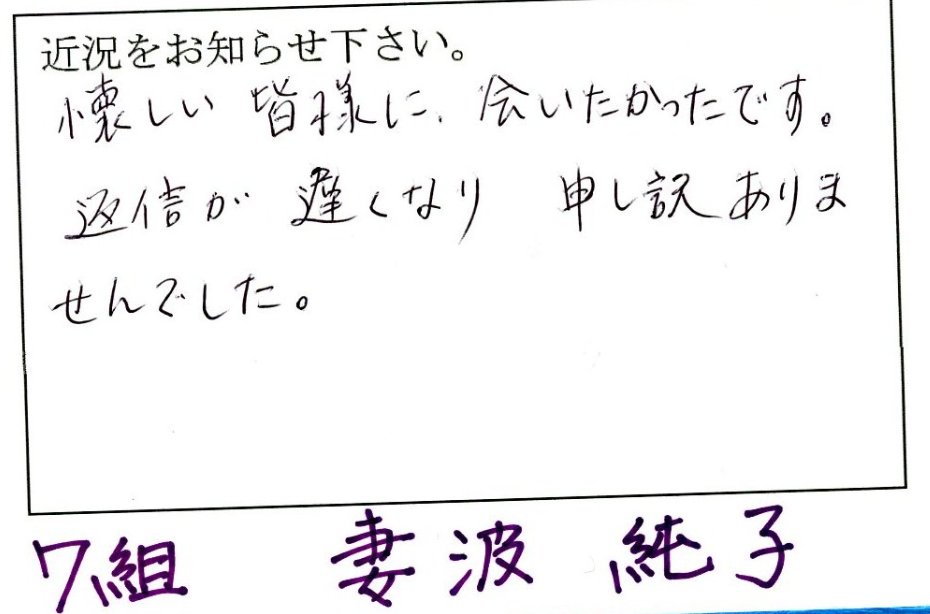 近況をお知らせ下さい。
懐しい 皆様に、会いたかったです。
返信が 遅くなり 申し訳ありま
せんでした。
7組 妻波 純子